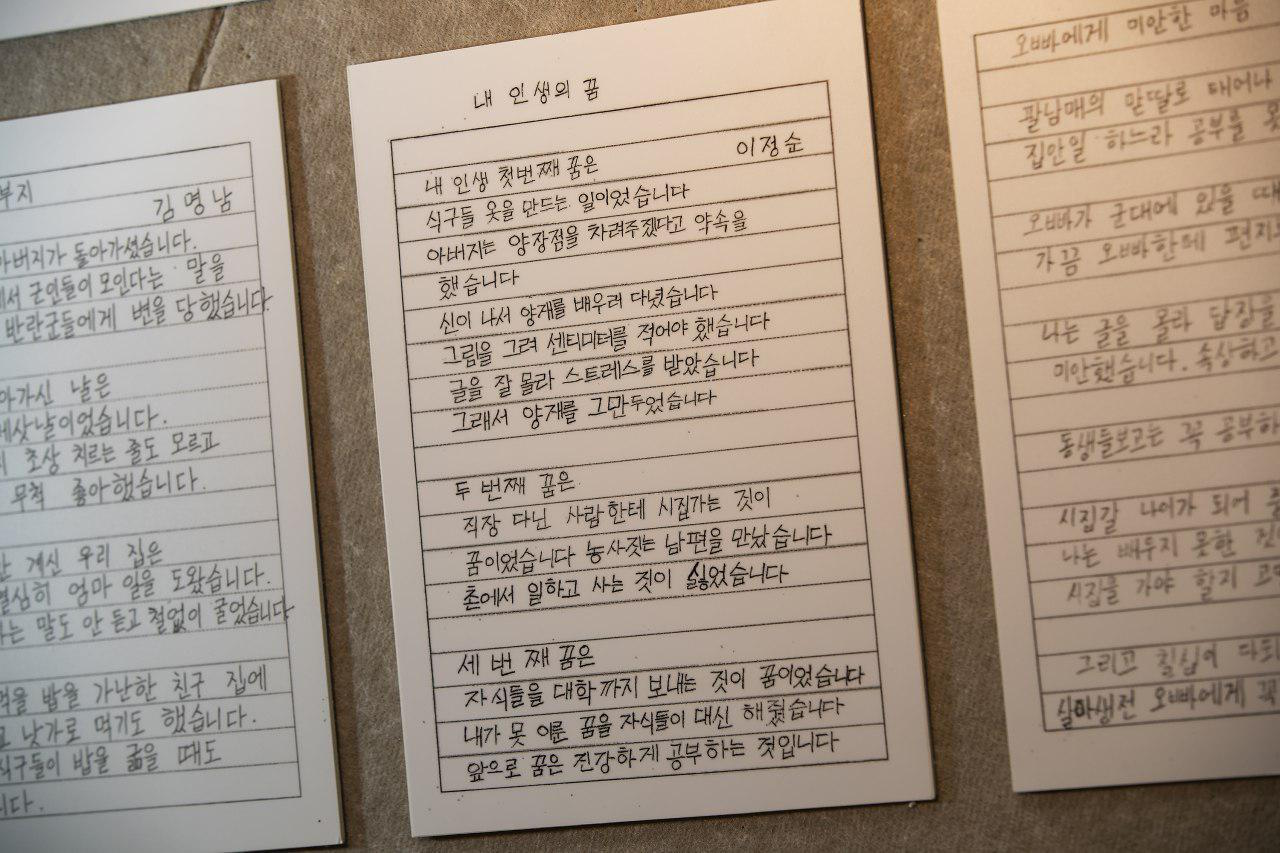 부지
김명남
아버지가 돌아가셨습니다.
서 군인들이 모인다는 말을
반란군들에게 변을 당했습니다.
아가신 날은
세삿날이었습니다.
초상 치르는 줄도 모르고
무척 좋아했습니다.
계신 우리 집은
열심히 엄마 일을 도왔습니다.
는 말도 안 듣고 철없이 굴었습니다
먹을 밥을 가난한 친구 집에
고 낫가로 먹기도 했습니다.
식구들이 밥을 굶을 때도
니다.
내 인생의 꿈
이정순
내 인생 첫번째 꿈은
식구들 옷을 만드는 일이었습니다
아버지는 양장점을 차려주겠다고 약속을
했습니다
신이 나서 양재를 배우러 다녔습니다
그림을 그려 센티미터를 적어야 했습니다
글을 잘 몰라 스트레스를 받았습니다
그래서 양재를 그만두었습니다
두 번째 꿈은
직장 다닌 사람한테 시집가는 것이
꿈이었습니다 농사짓는 남편을 만났습니다
촌에서 일하고 사는 것이 싫었습니다
세 번째 꿈은
자식들을 대학까지 보내는 것이 꿈이었습니다
내가 못 이룬 꿈을 자식들이 대신 해줬습니다
앞으로 꿈은 건강하게 공부하는 것입니다
오빠에게 미안한 마음
팔남매의 맏딸로 태어나
집안일 하느라 공부를 못
오빠가 군대에 있을 때
가끔 오빠한테 편지
나는 글을 몰라 답장을
미안했습니다. 속상하고
동생들보고는 꼭 공부하
시집갈 나이가 되어
나는 배우지 못한 것
시집을 가야 할지 고민
그리고 칠십이 다되
살아생전 오빠에게 꼭